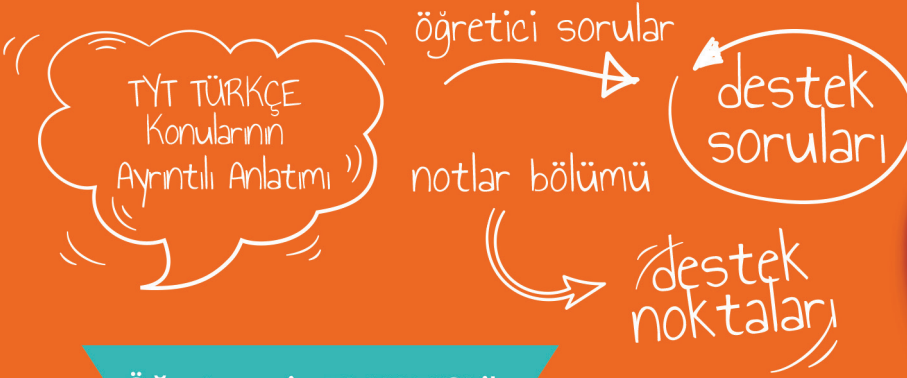 TYT TÜRKÇE
Konularının
Ayrıntılı Anlatımı
öğretici sorular
destek
soruları
notlar bölümü
destek
noktaları